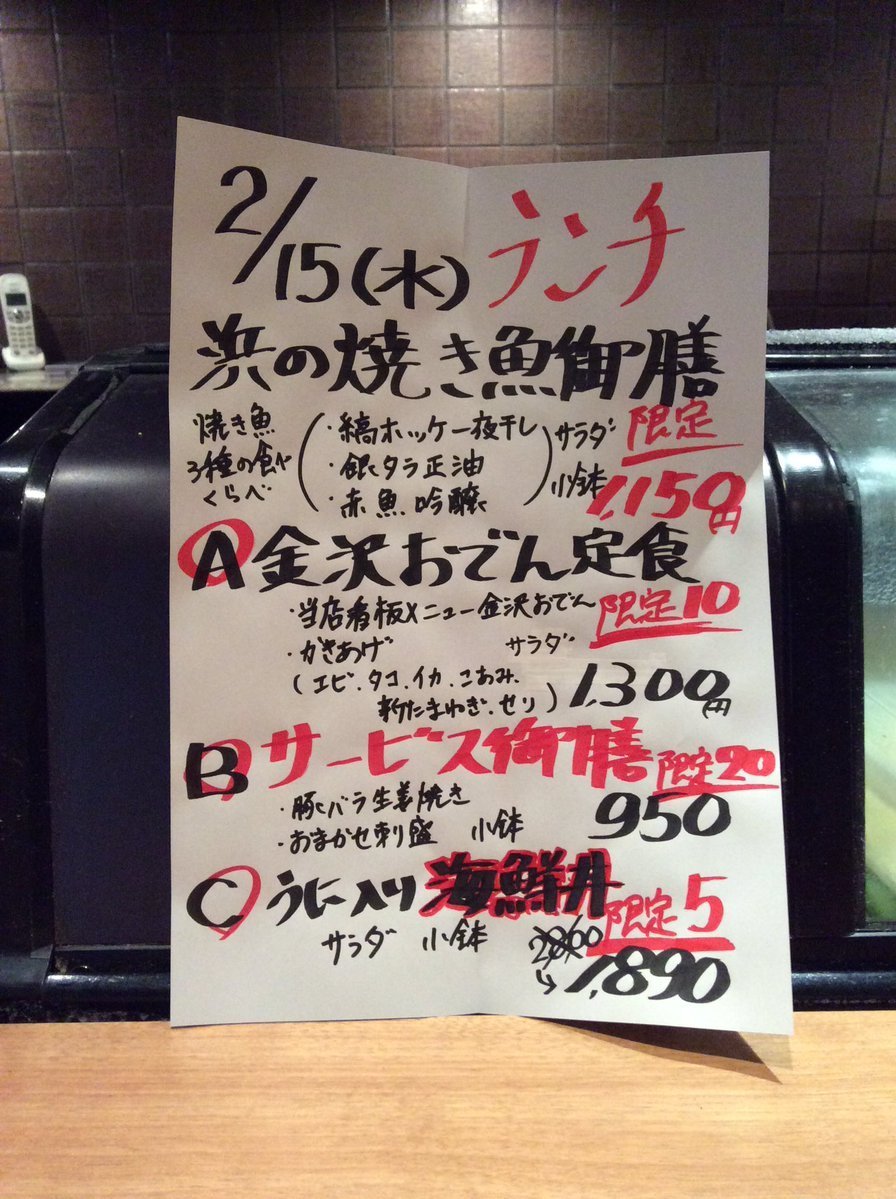 2/15(水) ランチ
浜の焼き魚御膳
焼き魚
3種の食べ
くらべ
・縞ホッケ一夜干し
・銀タラ正油
・赤魚吟醸
サラダ
小鉢
限定
1,150円
A 金沢おでん定食
・当店看板メニュー金沢おでん
限定10
・かきあげ サラダ
(エビ.タコ.イカ.こあみ.
新たまねぎ.セリ)
1,300円
B サービス御膳 限定20
・豚バラ生姜焼き
・おまかせ刺し盛 小鉢
950
C うに入り海鮮丼
限定5
サラダ 小鉢
1,890